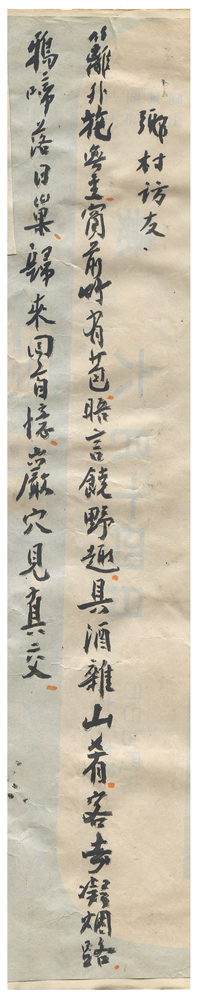 鄉村訪友
籬外無主窗前竹有苞晤言饒野趣具酒雜山肴客去凝烟路
鴉啼落日巢歸來回首憶巖穴見真交